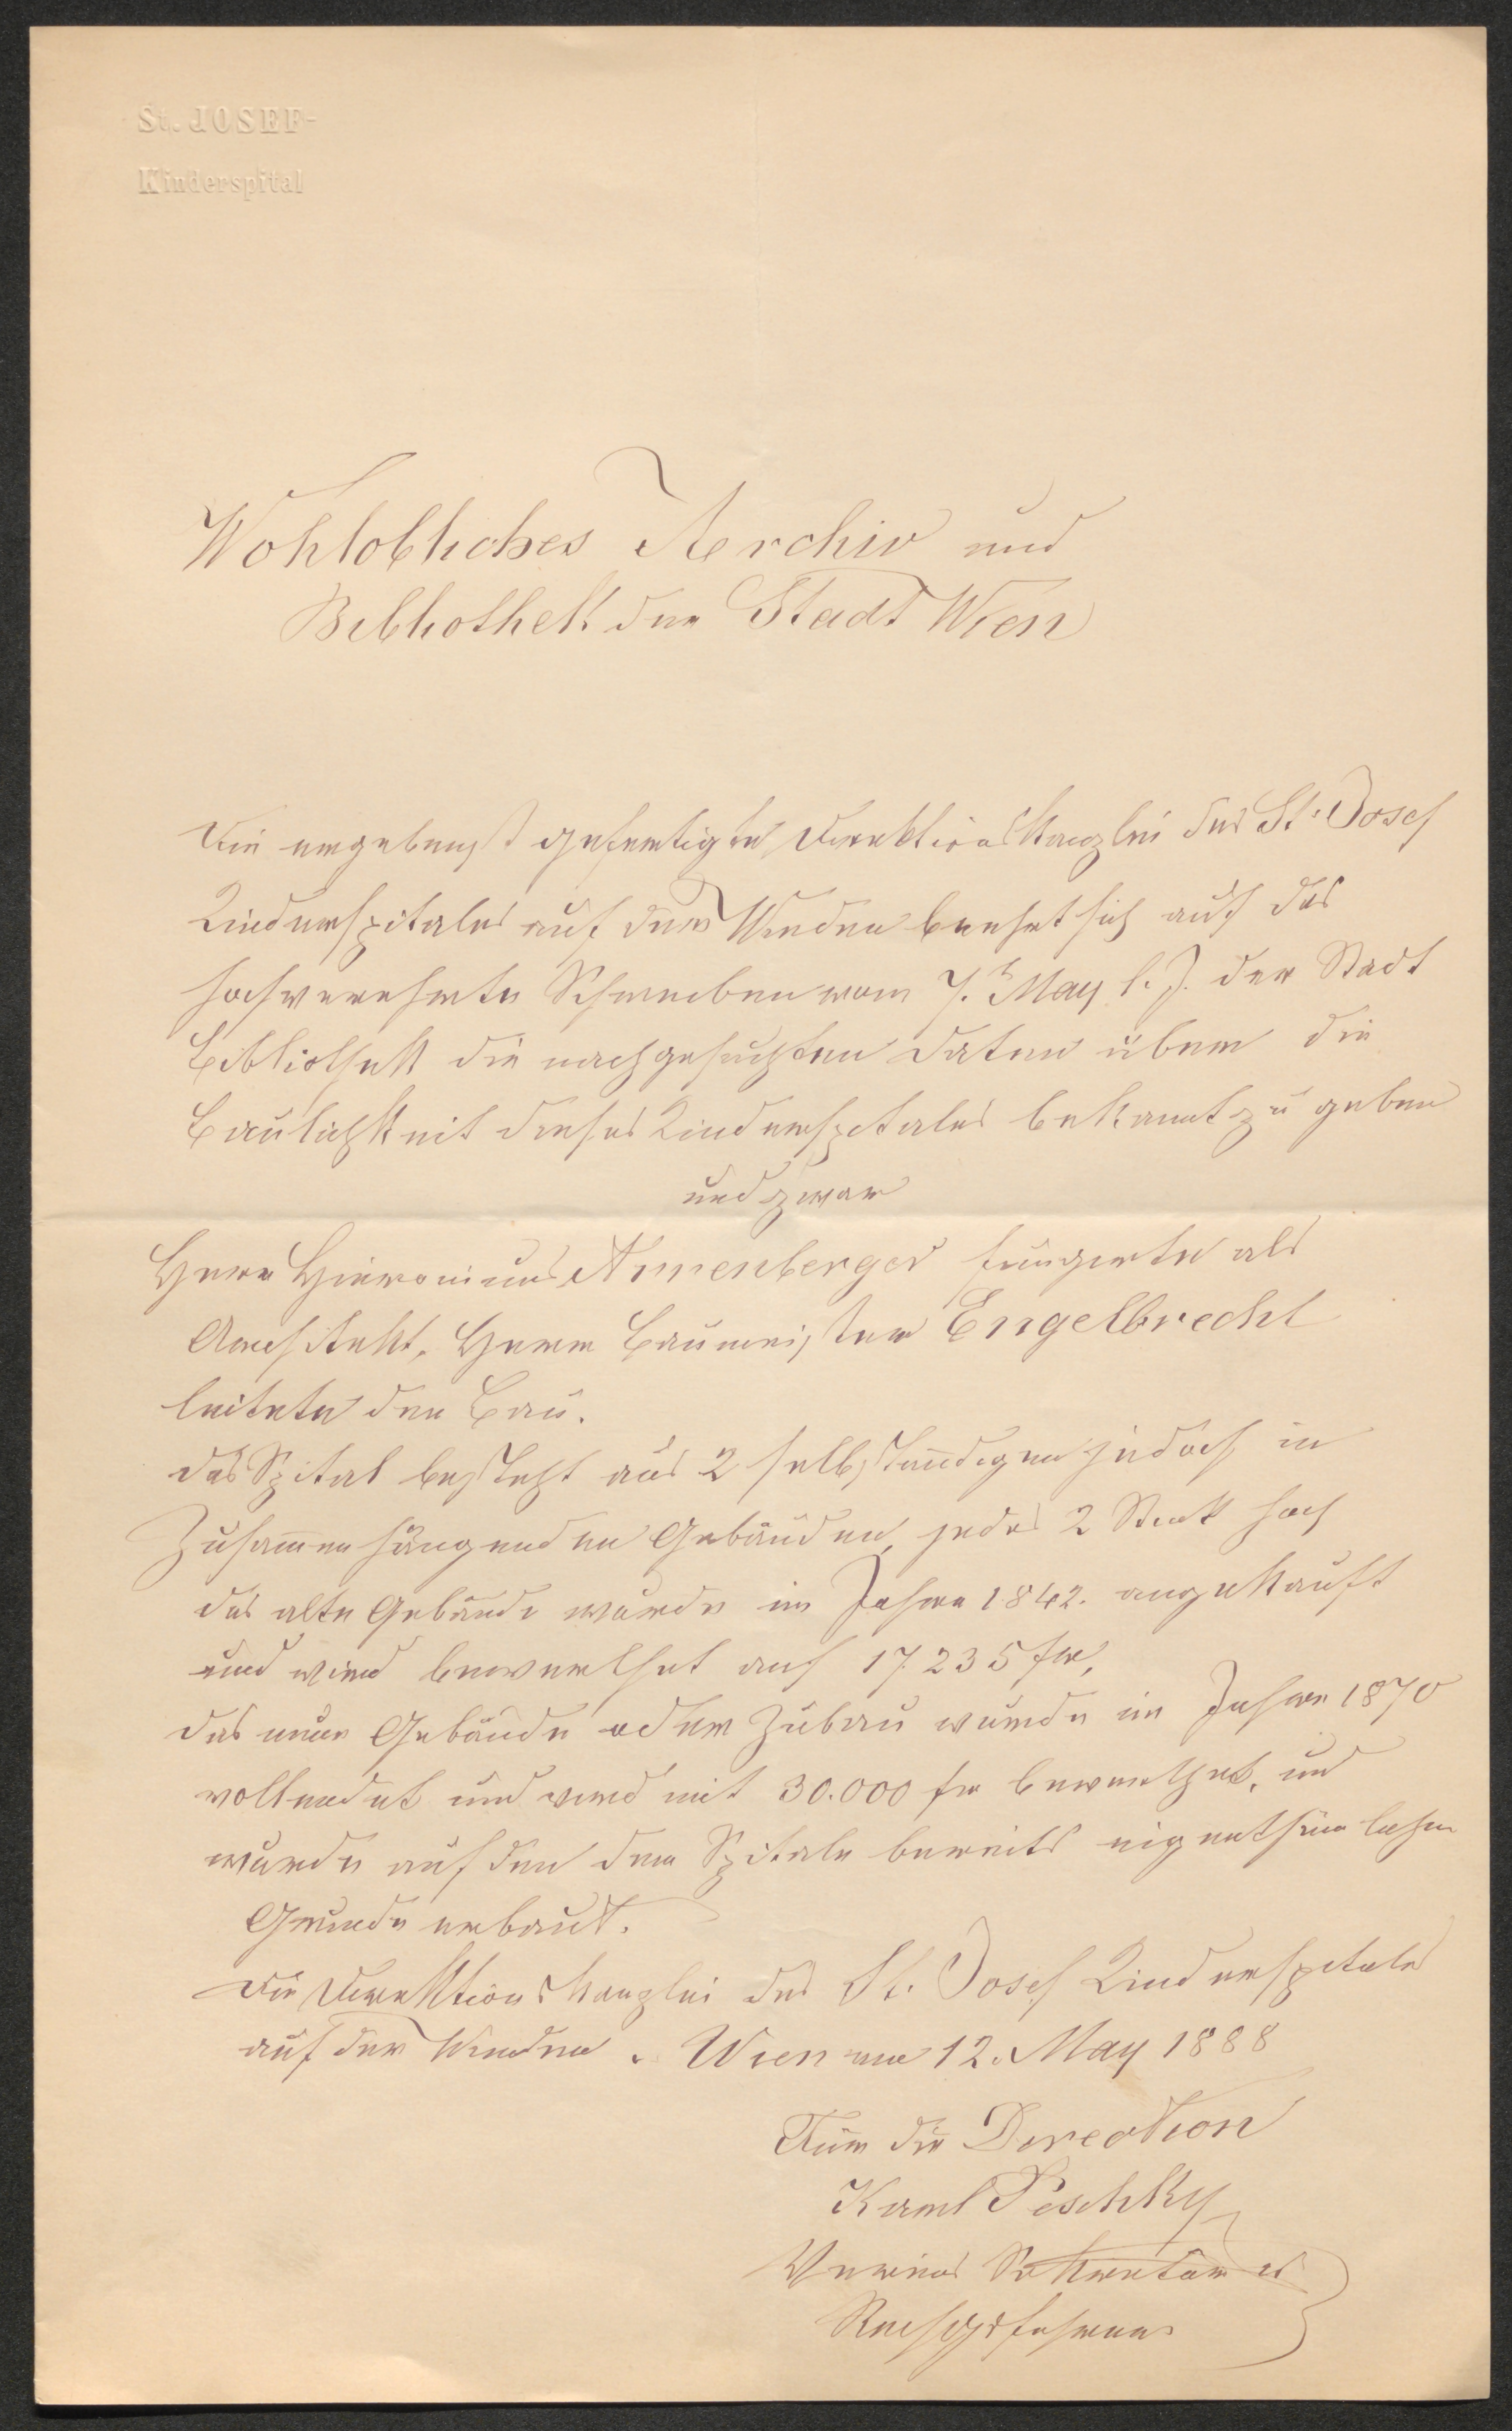 St. JOSEF-
Kinderspital
Wohllöbliches Archiv und
Bibliothek der Stadt Wien
Die ergebenst gefertigte Direktionskanzlei des St. Josef
Kinderspitales auf der Wieden beehrt sich auf das
hochverehrte Schreiben vom 7. May l. J. der Stadt
Bibliothek die nachgesuchten Daten über die
Baulichkeit dieses Kinderspitales bekannt zu geben
und zwar
Herr Hieronimus Arnenberger fungirte als
Architekt, Herr Baumeister Engelbrecht
leitete den Bau.
das Spital besteht aus 2 selbständigen jedoch in
Zusammenhängenden Gebäuden, jedes 2 Stock hoch
das alte Gebäude wurde im Jahre 1842. angekauft
und wird bewerthet auf 17.235 fr,
das neue Gebäude oder Zubau wurde im Jahre 1870
vollendet und wird mit 30.000 fr bewerthet, und
wurde auf den dem Spitale bereits eigenthümlichen
Grunde erbaut.
Die Direktionskanzlei des St. Josef Kinderspitales
auf der Wieden. Wien am 12. May 1888
Für die Direction
Karl Peschky
Vereins Sekretär et